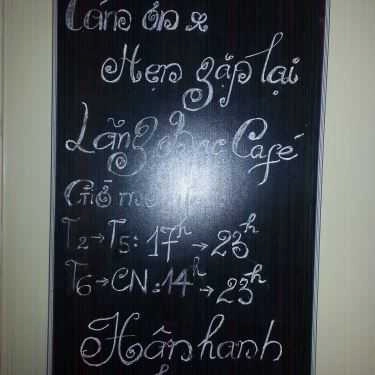 Cám ơn &
Hẹn gặp lại
Lãng bạc Café
Giờ mở
T2→T5: 17h→23h
T6→CN:14h→23h
Hân hạnh